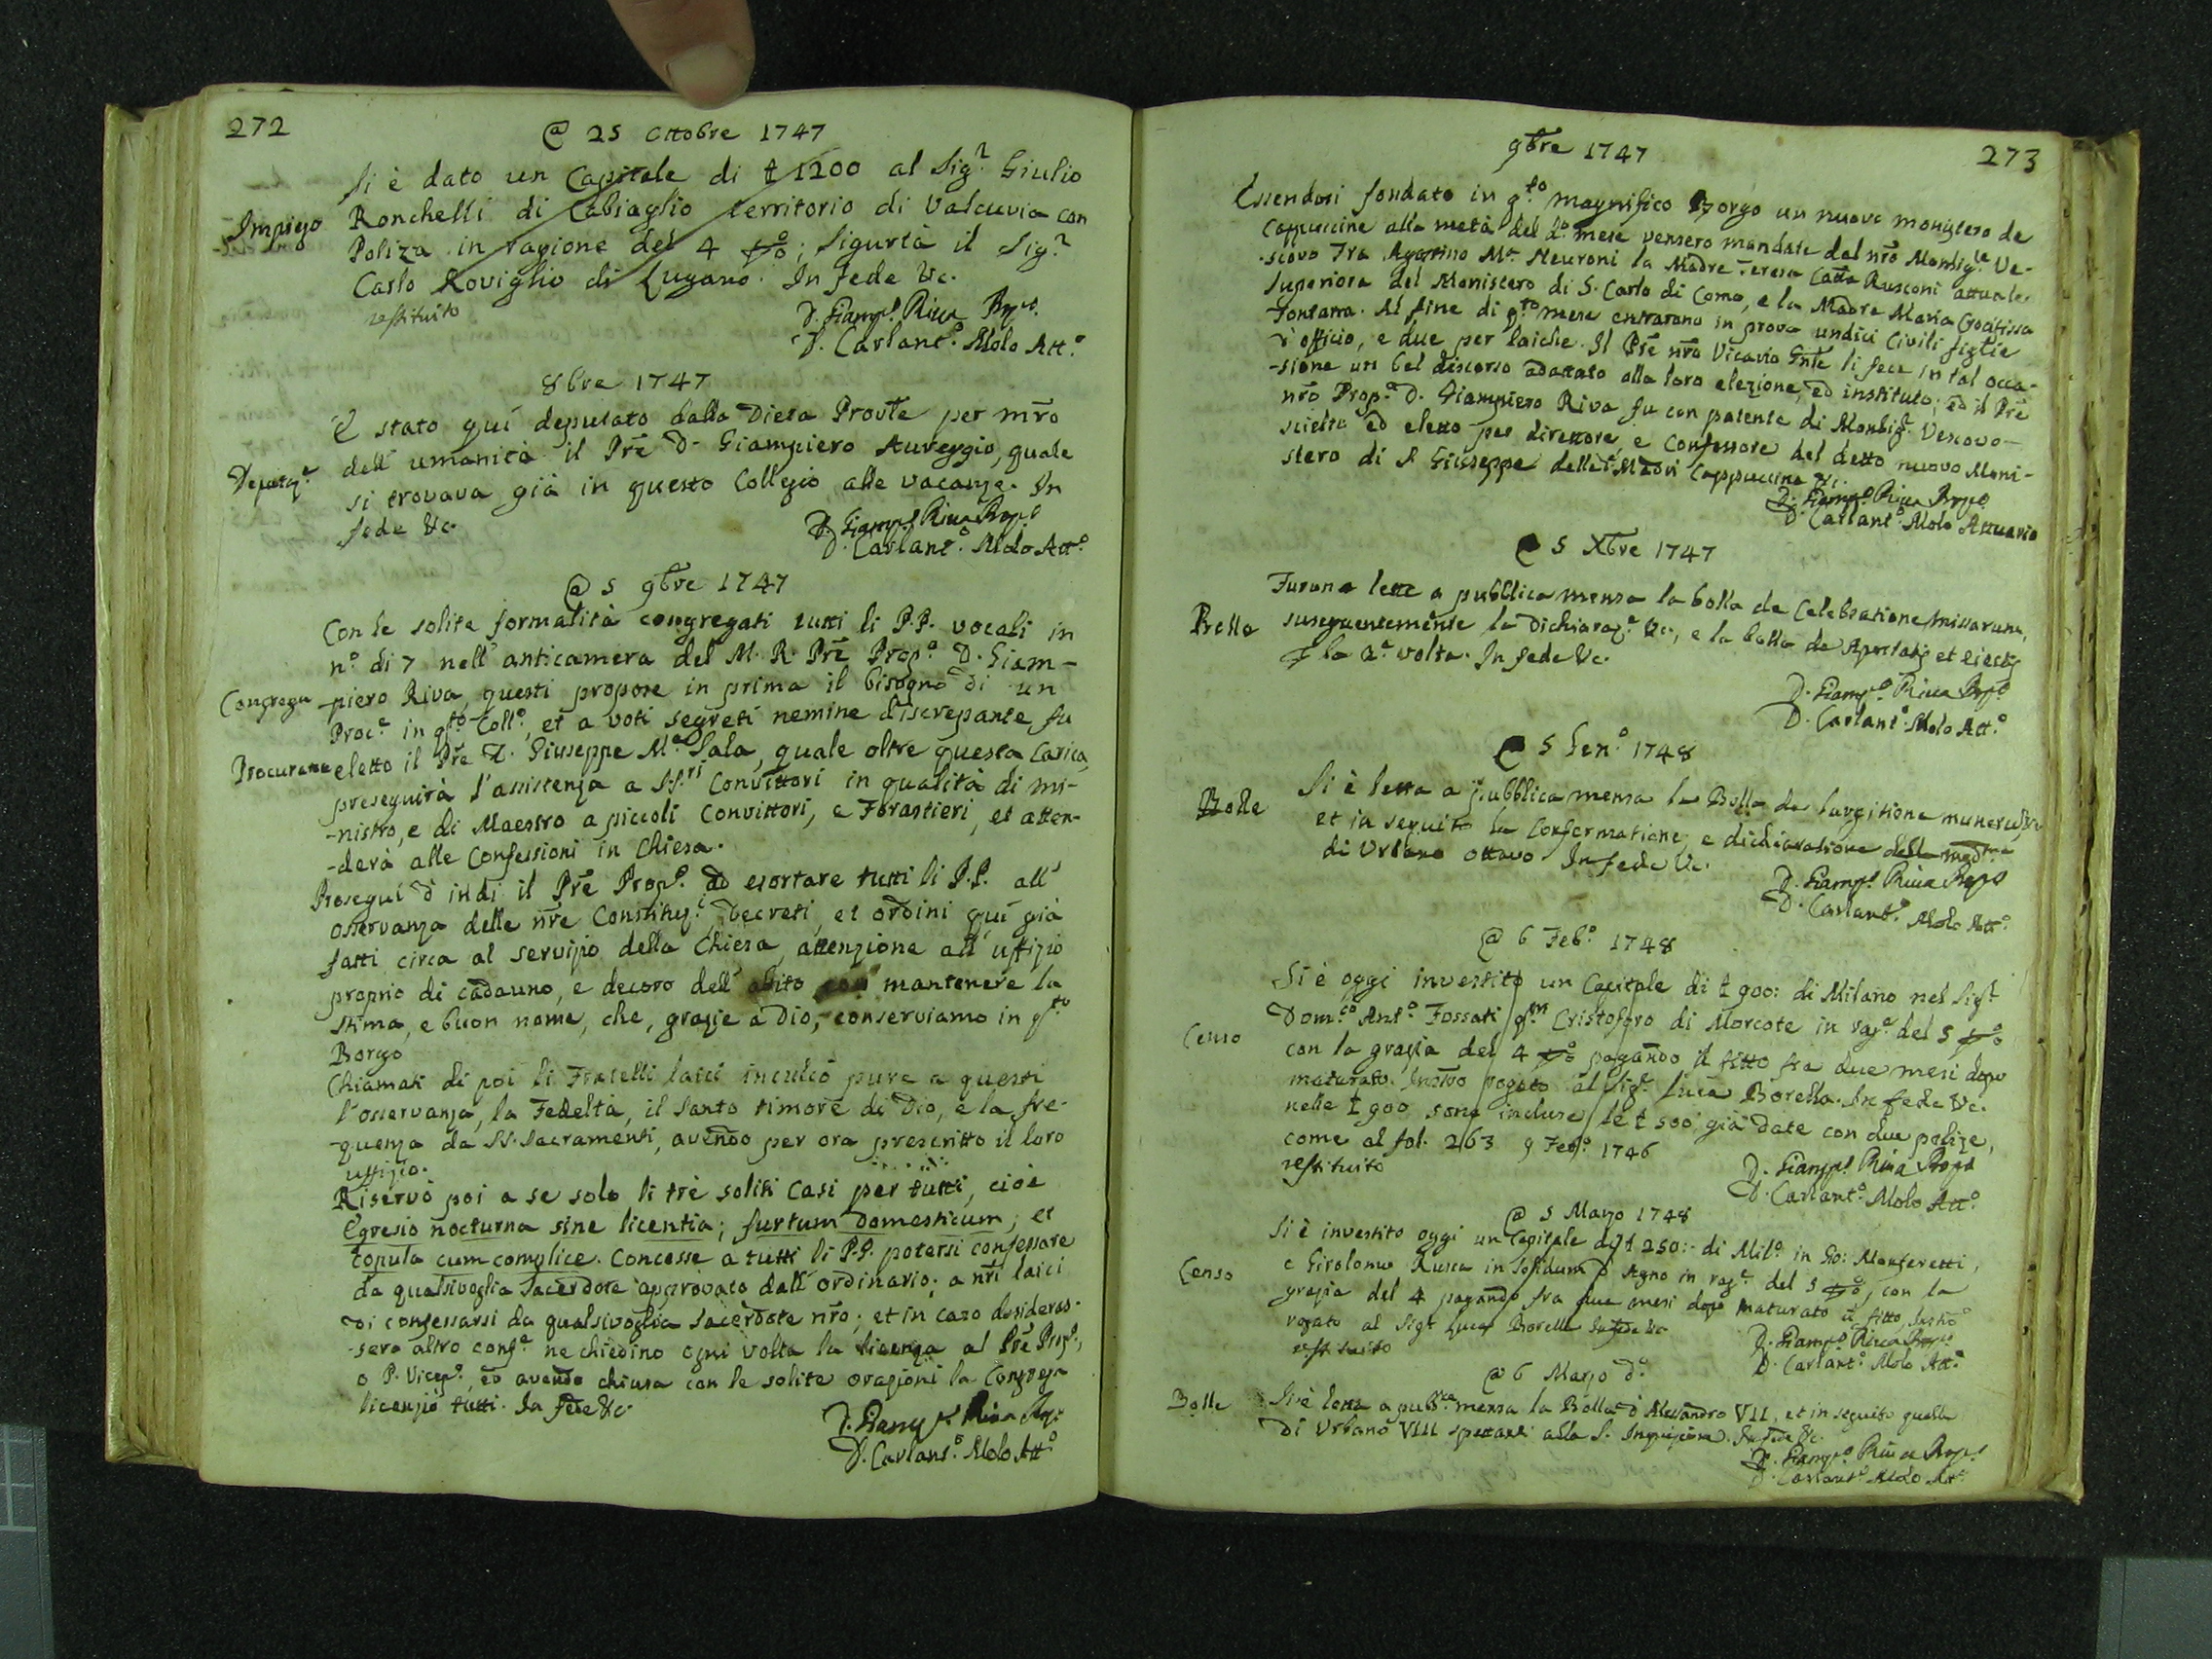 272
@ 25 Ottobre 1747
Si è dato un Capitale di ₤ 1200 al Sig.r Giulio
Impiego Ronchelli di Cabiaglio territorio di Valcuvia con
Poliza in ragione del 4 p%; Sigurtà il Sig.r
Carlo Roviglio di Lugano. In fede &c.
restituito
D. Giamp.o Riva Prep.o
D. Carlant.o Molo Att.o
8bre 1747
È stato quí deputato dalla Dieta Provle per mro
dell' umanità il Pre D. Giampiero Aureggio, quale
Deputaz.e si trovava già in questo Collegio alle vacanze. In
fede &c.
D. Giamp.o Riva Prep.o
D. Carlant.o Molo Att.o
@ 5 9bre 1747
Con le solite formalità congregati tutti li P.P. vocali in
n.o di 7 nell' anticamera del M. R. Pre Prop.o D. Giam-
Congrega -piero Riva, questi propose in prima il bisogno di un
Proc.e in q.to Coll.o, et a voti segreti nemine discrepante fu
Procuratore eletto il Pre D. Giuseppe M.a Sala, quale oltre questa carica,
proseguirà l'assistenza a SS.ri Convittori in qualità di mi-
-nistro, e di Maestro a piccoli Convittori, e Forastieri, et atten-
-derà alle Confessioni in Chiesa.
Proseguí d'indi il Pre Prop.o ad esortare tutti li P.P. all'
osservanza delle nre Constituz.i, Decreti, et ordini quí già
fatti circa al servizio della Chiesa, attenzione all' uffizio
proprio di cadauno, e decoro dell' abito mantenere la
stima, e buon nome, che, grazie a Dio, conserviamo in q.to
Borgo
Chiamati di poi li Fratelli laici inculcò pure a questi
l'osservanza, la Fedeltà, il Santo timore di Dio, e la fre-
-quenza da SS. Sacramenti, avendo per ora prescritto il loro
uffizio.
Riservò poi a se solo li trè soliti Casi per tutti, cioè
Egresio nocturna sine licentia; furtum domesticum; et
copula cum complice. Concesse a tutti li P.P. potersi confessare
da qualsivoglia Sacerdote approvato dall' ordinario; a nri laici
di confessarsi da qualsivoglia Sacerdote nro; et in caso desideras-
-sero altro conf.e ne chiedino ogni volta la licenza al Pre Prep.o,
o P. Vicep.o, ed avendo chiusa con le solite orazioni la Congrega
licenziò tutti. In fede &c.
D. Giamp.o Riva Prep.o
D. Carlant.o Molo Att.o
273
9bre 1747
Essendosi fondato in q.to magnifico Borgo un nuovo monistero de
Cappuccine alla metà del d.o mese vennero mandate dal nro Monsig.re Ve-
-scovo Fra Agostino M.a Neuroni la Madre Teresa Catta Rusconi attuale
Superiora del Monistero di S. Carlo di Como, e la Madre Maria Crocifissa
Fontana. Al fine di q.to mese entrarono in prova undici Civili figlie
d'officio, e due per laiche. Il Pre nro Vicario Gnle li fece in tal occa-
-sione un bel discorso adattato alla loro elezione, ed instituto; ed il Pre
nro Prop.o D. Giampiero Riva fu con patente di Monsig.r Vescovo
scielto ed eletto per direttore, e Confessore del detto nuovo Moni-
stero di S. Giuseppe delle Madri Cappuccine &c.
D. Giamp.o Riva Prep.o
D. Carlant.o Molo Attuario
@ 5 Xbre 1747
Furono lette a pubblica mensa la bolla de Celebratione missarum,
Bolla susseguentemente la Dichiaraz.e &c., e la bolla de Apostatis et eiectis
p la 2.a volta. In fede &c.
D. Giamp.o Riva Prep.o
D. Carlant.o Molo Att.o
@ 5 Gen.o 1748
Si è letta a pubblica mensa la Bolla de largitione munerum
Bolle et in seguito la Confermatione, e dichiaratione della med.ma
di Urbano ottavo. In fede &c.
D. Giamp.o Riva Prep.o
D. Carlant.o Molo Att.o
@ 6 Feb.o 1748
Si è oggi investito un Capitale di ₤ 900: di Milano nel Sig.r
Dom.co Ant.o Fossati q.m Cristoforo di Morcote in rag.e del 5 p%
Censo con la grazia del 4 p% pagando il fitto fra due mesi dopo
maturato. Instro rogato al Sig.r Luca Borella. In fede &c.
nelle ₤ 900 sono incluse le ₤ 500 già date con due polize,
come al fol. 263 9 Feb.o 1746
restituito
D. Giamp.o Riva Prep.o
D. Carlant.o Molo Att.o
@ 5 Marzo 1748
Si è investito oggi un Capitale di ₤ 250:- di Mil.o in Gio:
Censo e Girolomo Rusca in solidum d'Agno in rag.e del 5 p%, con la
grazia del 4 pagando fra due mesi dopo maturato il fitto, Instro
rogato al Sig.r Luca Borella In fede &c
restituito
D. Giamp.o Riva Prep.o
D. Carlant.o Molo Att.o
@ 6 Marzo d.o
Bolle Si è letta a pubb.ca mensa la Bolla d'Alessandro VII, et in seguito quella
di Urbano VIII spettanti alla S. Inquisizione. In fede &c.
D. Giamp.o Riva Prep.o
D. Carlant.o Molo Att.o